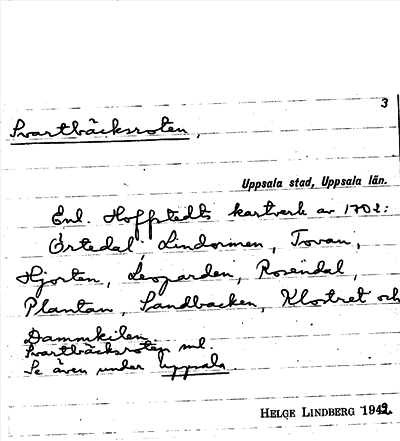 3
Svartbäcksroten,
Uppsala stad, Uppsala län.
Enl. Hoffstedts kartverk av 1702:
Örtedal, Lindormen, Tovan,
Hjorten, Leoparden, Rosendal,
Plantan, Sandbacken, Klostret och
Dammkilen.
Svartbäcksroten ml.
Se även under Uppsala
HELGE LINDBERG 1942.